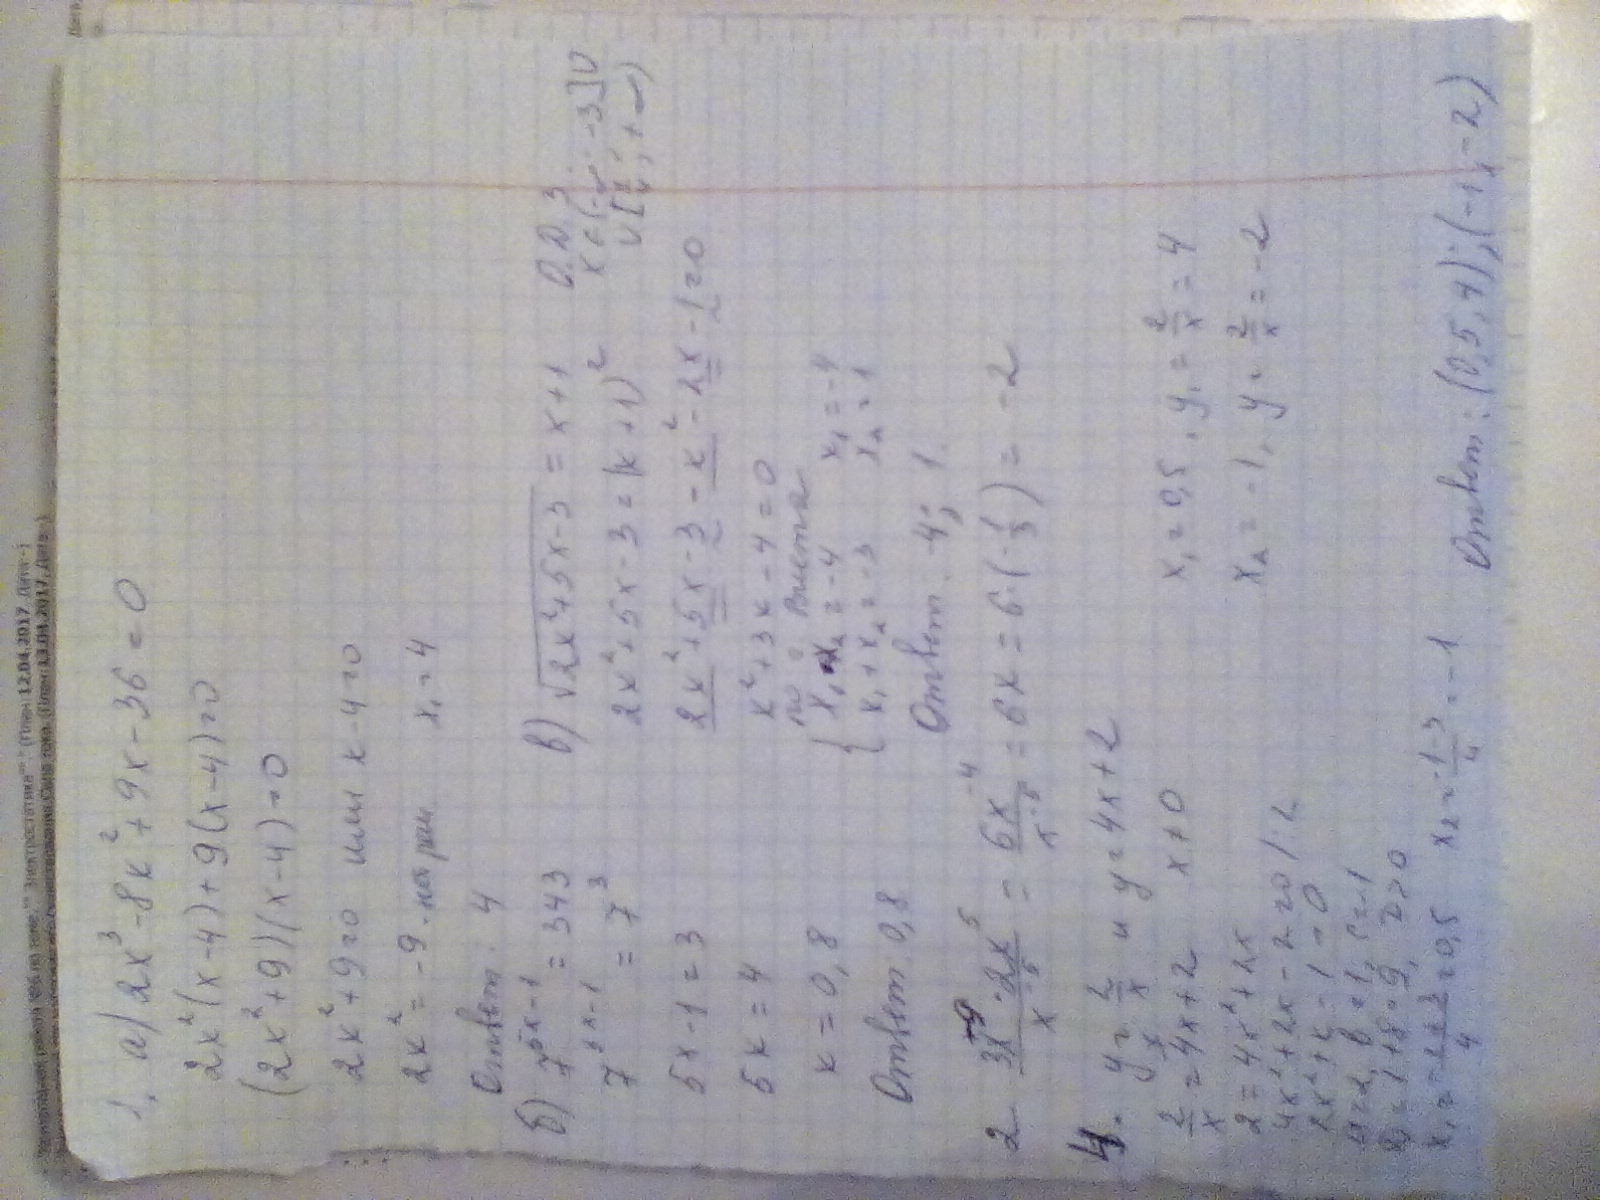 1. а) 2x³ - 8x² + 9x - 36 = 0
2x²(x-4) + 9(x-4) = 0
(2x² + 9)(x-4) = 0
2x² + 9 = 0 или x - 4 = 0
2x² = -9 - нет реш x₁ = 4
Ответ: 4
б) 7⁵ˣ⁻¹ = 343
7⁵ˣ⁻¹ = 7³
5x - 1 = 3
5x = 4
x = 0,8
Ответ: 0,8
в) √2x² + 5x - 3 = x + 1
О.Д.З
x ∈ (-∞; -3] ∪
2x² + 5x - 3 = (x + 1)²
2x² + 5x - 3 - x² - 2x - 1 = 0
x² + 3x - 4 = 0
по Виета
{ x₁ • x₂ = -4 x₁ = -4
x₁ + x₂ = -3 x₂ = 1
Ответ: -4; 1
2. 3x⁻⁹ · 2x⁵ / x⁻⁵ = 6x⁻⁴ / x⁻⁵ = 6x = 6·(-1/3) = -2
4. y = 2/x и y = 4x + 2
2/x = 4x + 2 x ≠ 0
2 = 4x² + 2x
4x² + 2x - 2 = 0 /:2
2x² + x - 1 = 0
a = 2, b = 1, c = -1
D = 1 + 8 = 9, D > 0
x₂ = -1-3/4 = -1
x₁ = 0,5, y₁ = 2/x = 4
x₂ = -1, y = 2/x = -2
Ответ: (0,5, 4); (-1, -2)